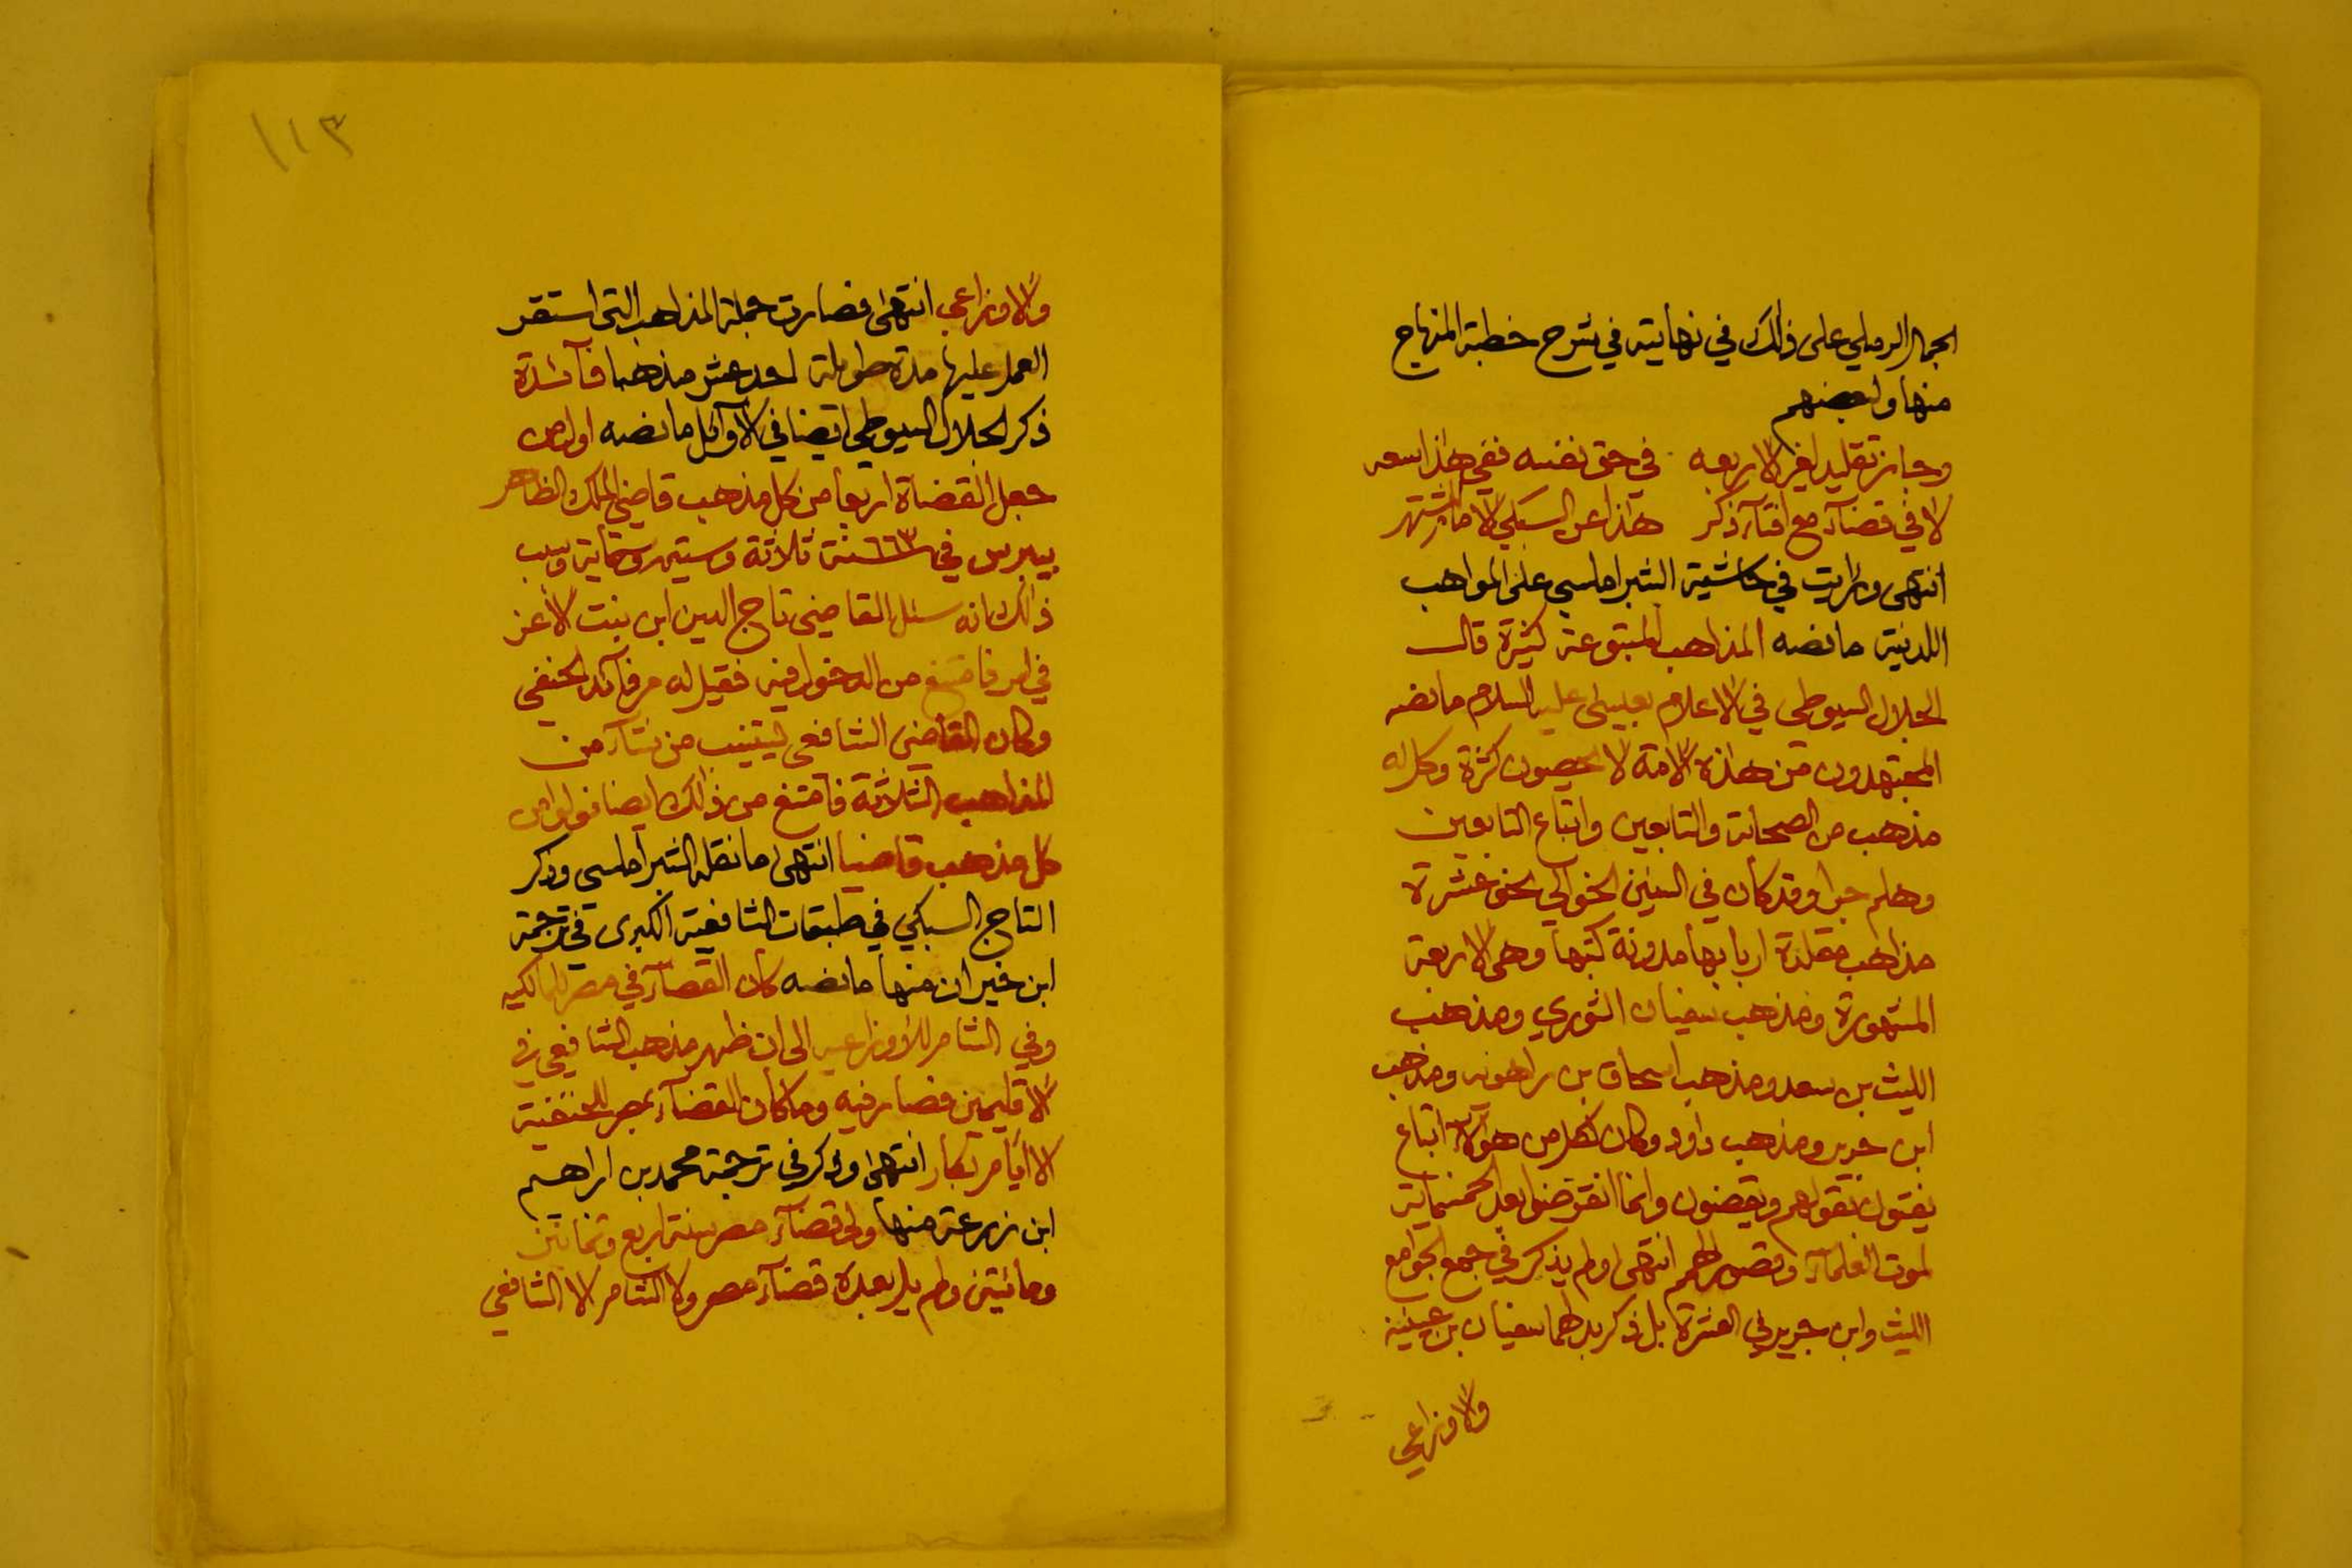 الجمال الرملي على ذلك في نهايته في شرح خطبة المنهاج
منها ولبعضهم
وجاز تقليد لغير الاربعه في حق نفسه ففي هذا سعه
لا في قضآء مع افتآء ذكر هذا عن السبكي الامام المشتهر
انتهى ورايت في حاشية الشبراملسي على المواهب
اللدنية ما نصه المذاهب المتبوعة كثيرة قال
الجلال السيوطي في الاعلام بعيسى عليه السلام ما نصه
المجتهدون من هذه الامة لا يحصون كثرة وكل له
مذهب من الصحابة والتابعين واتباع التابعين
وهلم جرا وقد كان في السنين الخوالي نحو عشرة
مذاهب مقلدة اربابها مدونة كتبها وهي الاربعة
المشهورة ومذهب سفيان الثوري ومذهب
الليث بن سعد ومذهب اسحاق بن راهويه ومذهب
ابن جرير ومذهب داود وكان لكل من هؤلآء اتباع
يفتون بقولهم ويقضون وانما انقرضوا بعد الخمسماية
لموت العلمآء وقصور الهمم انتهى ولم يذكر في جمع الجوامع
الليث وابن جرير في العشرة بل ذكر بدلهما سفيان بن عيينة
والاوزاعي
١١٣
والاوزاعي انتهى فصارت جملة المذاهب التي استقر
العمل عليها مدة طويلة احد عشر مذهبا فآئدة
ذكر الجلال السيوطي ايضا في الاوآئل ما نصه اول من
جعل القضاة اربعا من كل مذهب قاضي الملك الظاهر
بيبرس في سنة ٦٦٣ ثلاثة وستين وستماية وسبب
ذلك انه سئل القاضي تاج الدين ابن بنت الاعز
في امر فامتنع من الدخول فيه فقيل له مر نآئبك الحنفي
وكان القاضي الشافعي يستنيب من شآء من
المذاهب الثلاثة فامتنع من ذلك ايضا فولوا من
كل مذهب قاضيا انتهى ما نقله الشبراملسي وذكر
التاج السبكي في طبقات الشافعية الكبرى في ترجمة
ابن خيران منها ما نصه كان القضآء في مصر للمالكيه
وفي الشام للاوزاعيه الى ان ظهر مذهب الشافعي في
الاقليمين فصار فيه وما كان القضآء بمصر للحنفية
الا ايام بكار انتهى وذكر في ترجمة محمد بن ابراهيم
ابن زرعة منها ولي قضآء مصر سنة اربع وثمانين
ومائتين ولم يل بعده قضآء مصر ولا الشام الا الشافعي